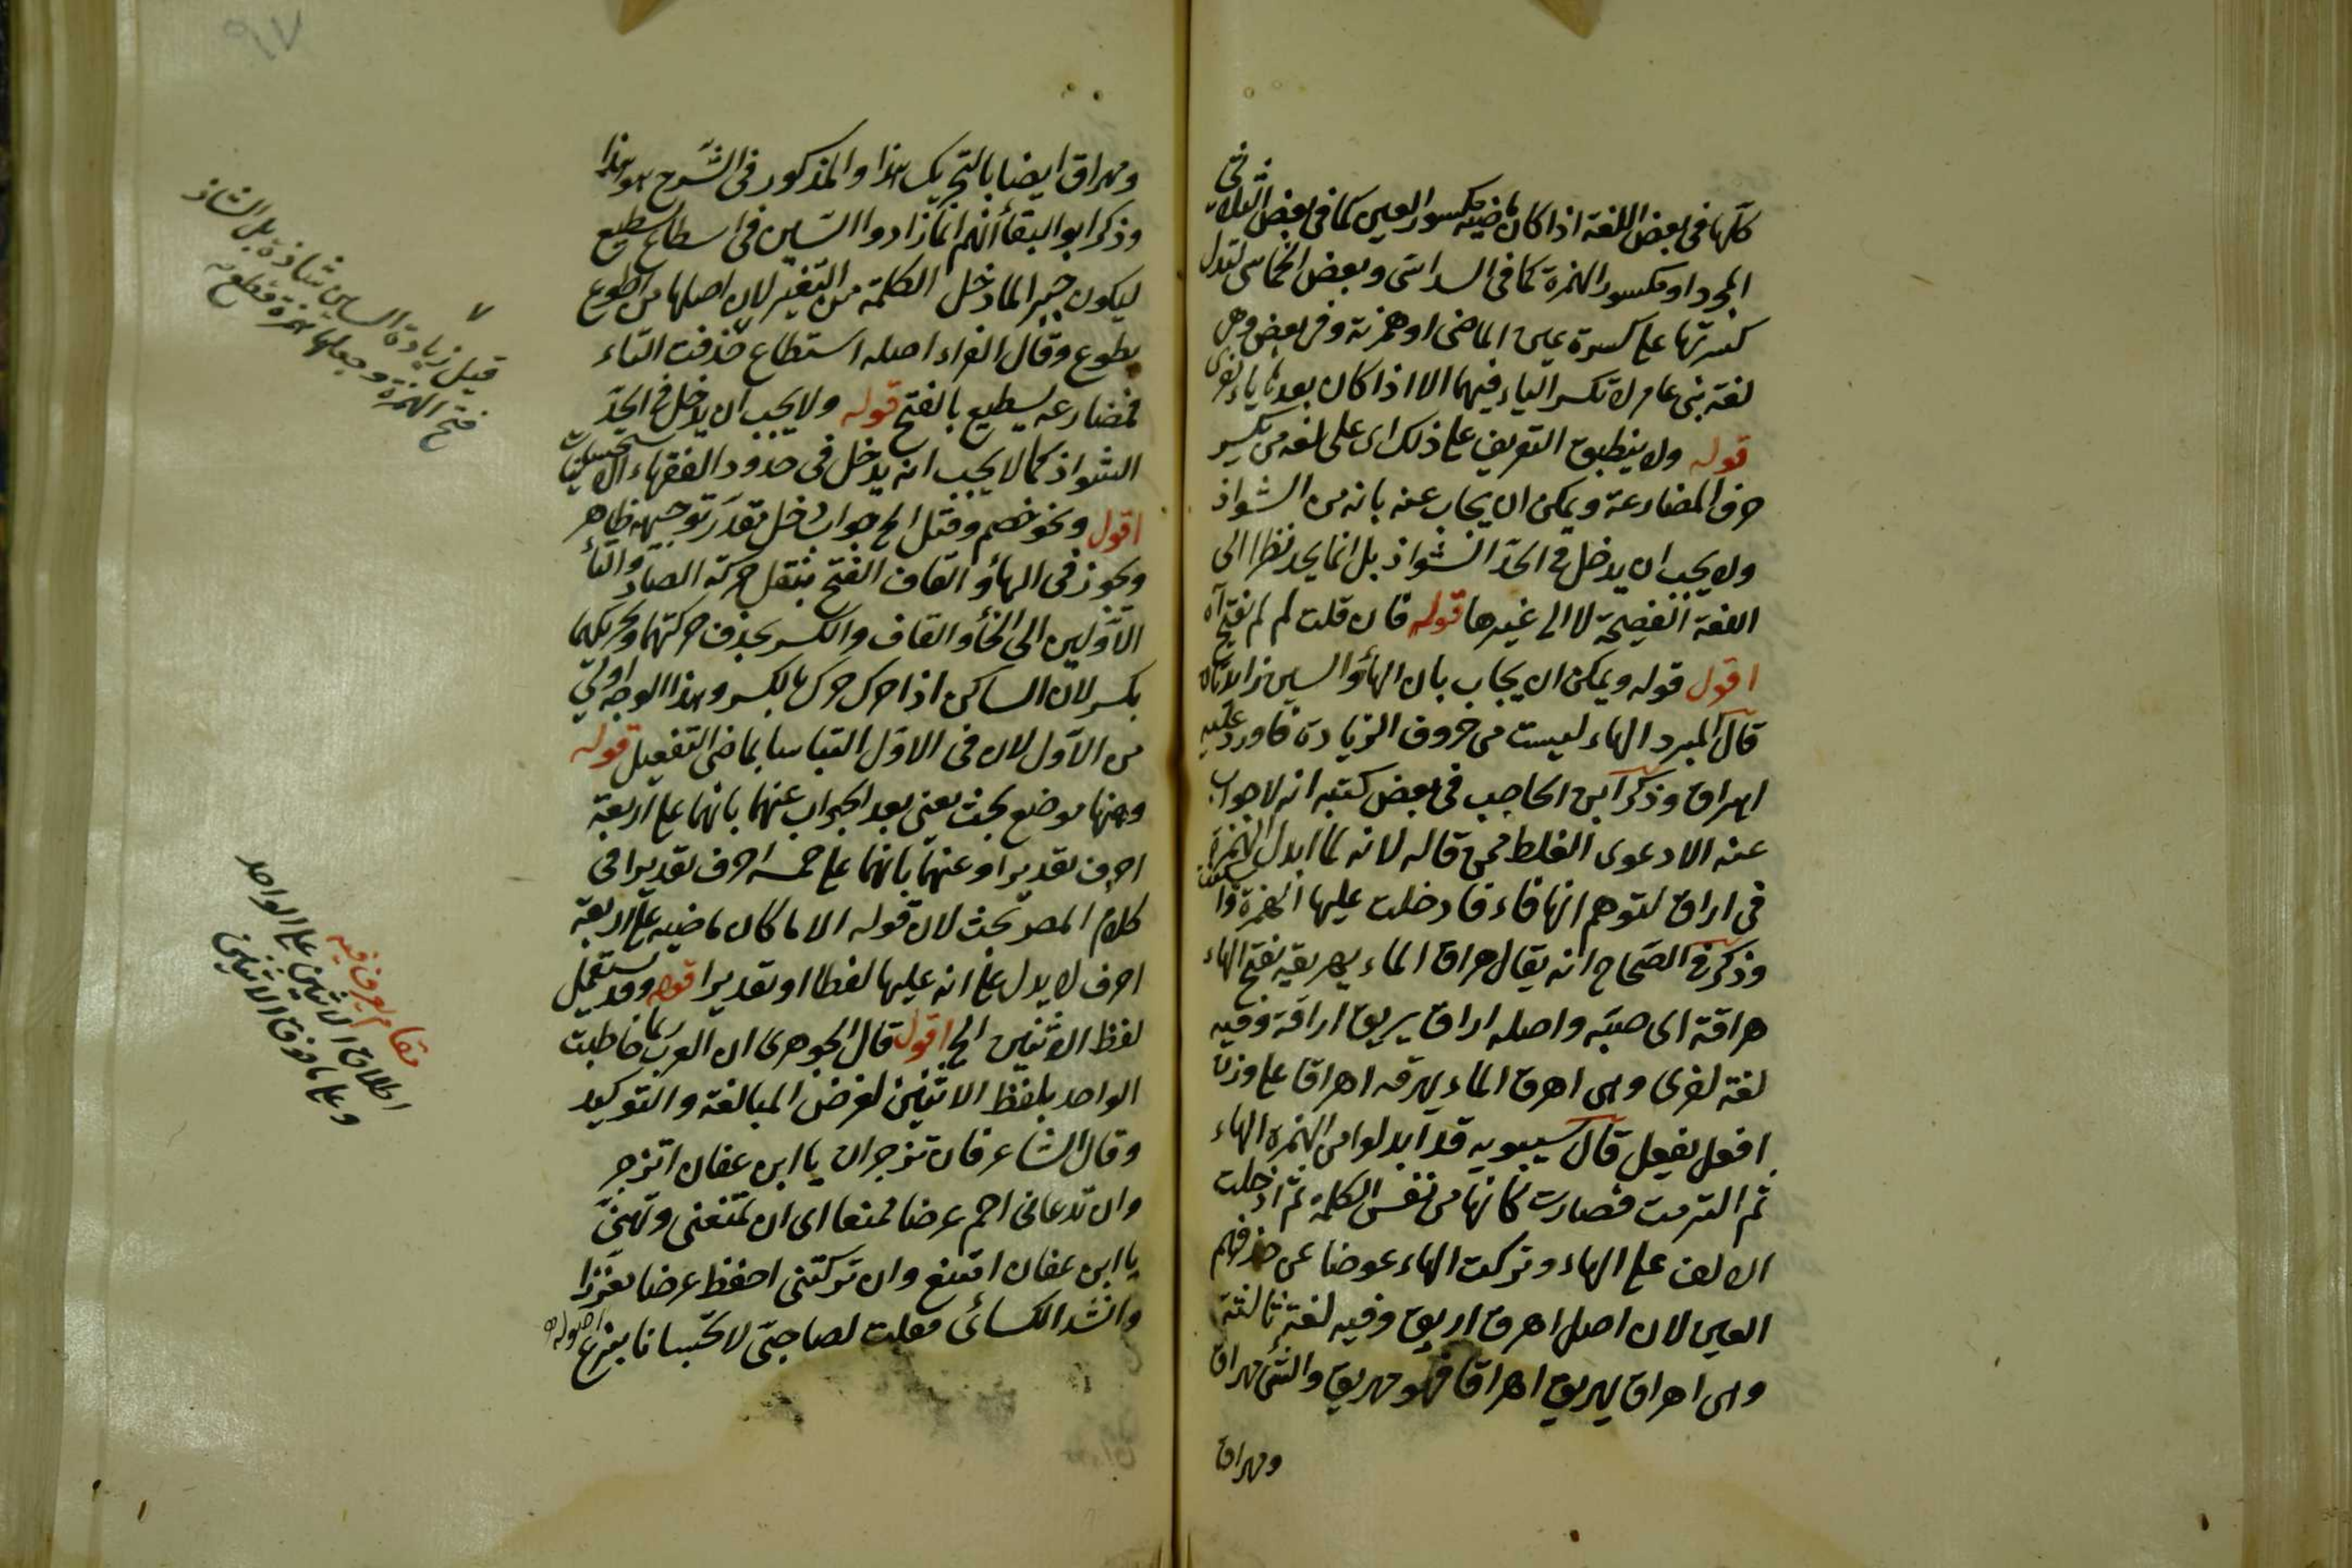 كلّها فى بعض اللغة اذا كان ماضيه مكسور العين كما فى بعض الثلاثى
المجرد او مكسور الهمزة كما فى السداسى وبعض الخماسى لتدل
كسرتها على كسرة عين الماضى او همزته وفى بعض وهى
لغة بنى عامر لا تكسر الياء فيهما الا اذا كان بعدها ياء اخرى
قوله ولا ينطبق التعريف على ذلك اى على لغة من يكسر
حرف المضارعة ويمكن ان يجاب عنه بانه من الشواذ
ولا يجب ان يدخل فى الحدّ الشواذ بل انما يحد نظرا الى
اللغة الفصيحة لا الى غيرها قوله فان قلت لم لم تفتح اه
اقول قوله ويمكن ان يجاب بان الهاء والسين زائدتان
قال المبرد الهاء ليست من حروف الزيادة فاورد عليه
اهراق وذكر ابن الحاجب فى بعض كتبه انه لا جواب
عنه الا دعوى الغلط ممن قاله لانه لما ابدل الهمزة
فى اراق لتوهم انها فاء فادخلت عليها الهمزة
وذكر فى الصحاح انه يقال هراق الماء يهريقه بفتح الهاء
هراقة اى صبّه واصله اراق يريق اراقة وفيه
لغة اخرى وهى اهرق الماء يهرقه اهراقا على وزن
افعل يفعل قال سيبويه قد ابدلوا من الهمزة الهاء
ثم الزمت فصارت كانها من نفس الكلمة ثم ادخلت
الالف على الهاء وتركت الهاء عوضا عن حذفهم
العين لان اصل اهرق اريق وفيه لغة ثالثة
وهى اهراق يهريق اهراقا فهو مهريق والشئ مهراق
ومهراق
ومهراق ايضا بالتحريك هذا والمذكور فى الشرح هو هذا
وذكر ابو البقاء انهم انما زادوا السّين فى اسطاع يسطيع
ليكون جبرا لما دخل الكلمة من التغير لان اصلها من اطوع
يطوع وقال الفراء اصله استطاع حذفت التاء
فمضارعه يسطيع بالفتح قوله ولا يجب ان يدخل فى الحدّ
الشواذ كما لا يجب ان يدخل فى حدود الفقهاء الاستحسانيات
اقول ونحو خصم وقتل الخ جواب دخل مقدر توجيهه ظاهر
ويجوز فى الهاء والقاف الفتح بنقل حركة الصاد والتاء
الاوّلين الى الخاء والقاف والكسر بحذف حركتهما وتحريكهما
بكسر لان الساكن اذا حرك حرك بالكسر وهذا الوجه اولى
من الاوّل لان فى الاوّل التباسا بماضى التفعيل قوله
وههنا موضع بحث يعنى بعد الجواب عنهما بانهما على اربعة
احرف تقديرا وعنهما بانهما على خمسة احرف تقديرا فى
كلام المصر بحث لان قوله الا ما كان ماضيه على اربعة
احرف لا يدل على انه عليها لفظا او تقديرا قوله وقد يستعمل
لفظ الاثنين الخ اقول قال الجوهرى ان العرب ربما خاطبت
الواحد بلفظ الاثنين لغرض المبالغة والتوكيد
وقال الشاعر فان تزجران يا ابن عفان انزجر
وان تدعانى احم عرضا ممنعا اى ان تمنعنى وتهن
يا ابن عفان امتنع وان تركتنى احفظ عرضا معززا
وانشد الكسائى فقلت لصاحبى لا تحبسانا بنزع اصوله
قيل زيادة السين شاذة بل الشاذ
فتح الهمزة وجعلها همزة قطع
مقام يعرف فيه
اطلاق الاثنين على الواحد
وعلى ما فوق الاثنين